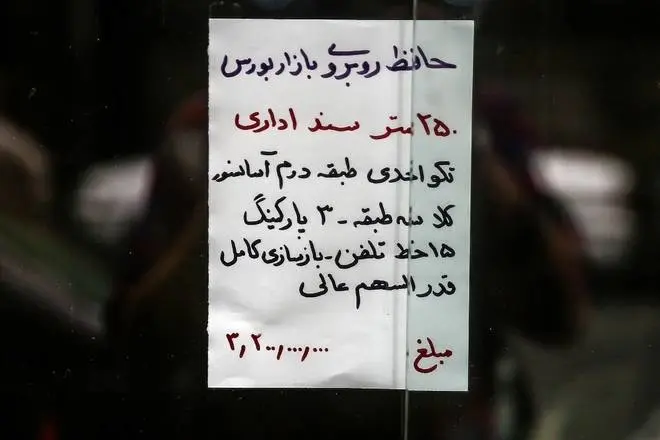 حافظ روبروی بازار بورس
۲۵۰ متر سند اداری
تکواحدی طبقه دوم آسانسور
کلا سه طبقه - ۳ پارکینگ
۱۵ خط تلفن - بازسازی کامل
قدرالسهم عالی
مبلغ ۳,۲۰۰,۰۰۰,۰۰۰